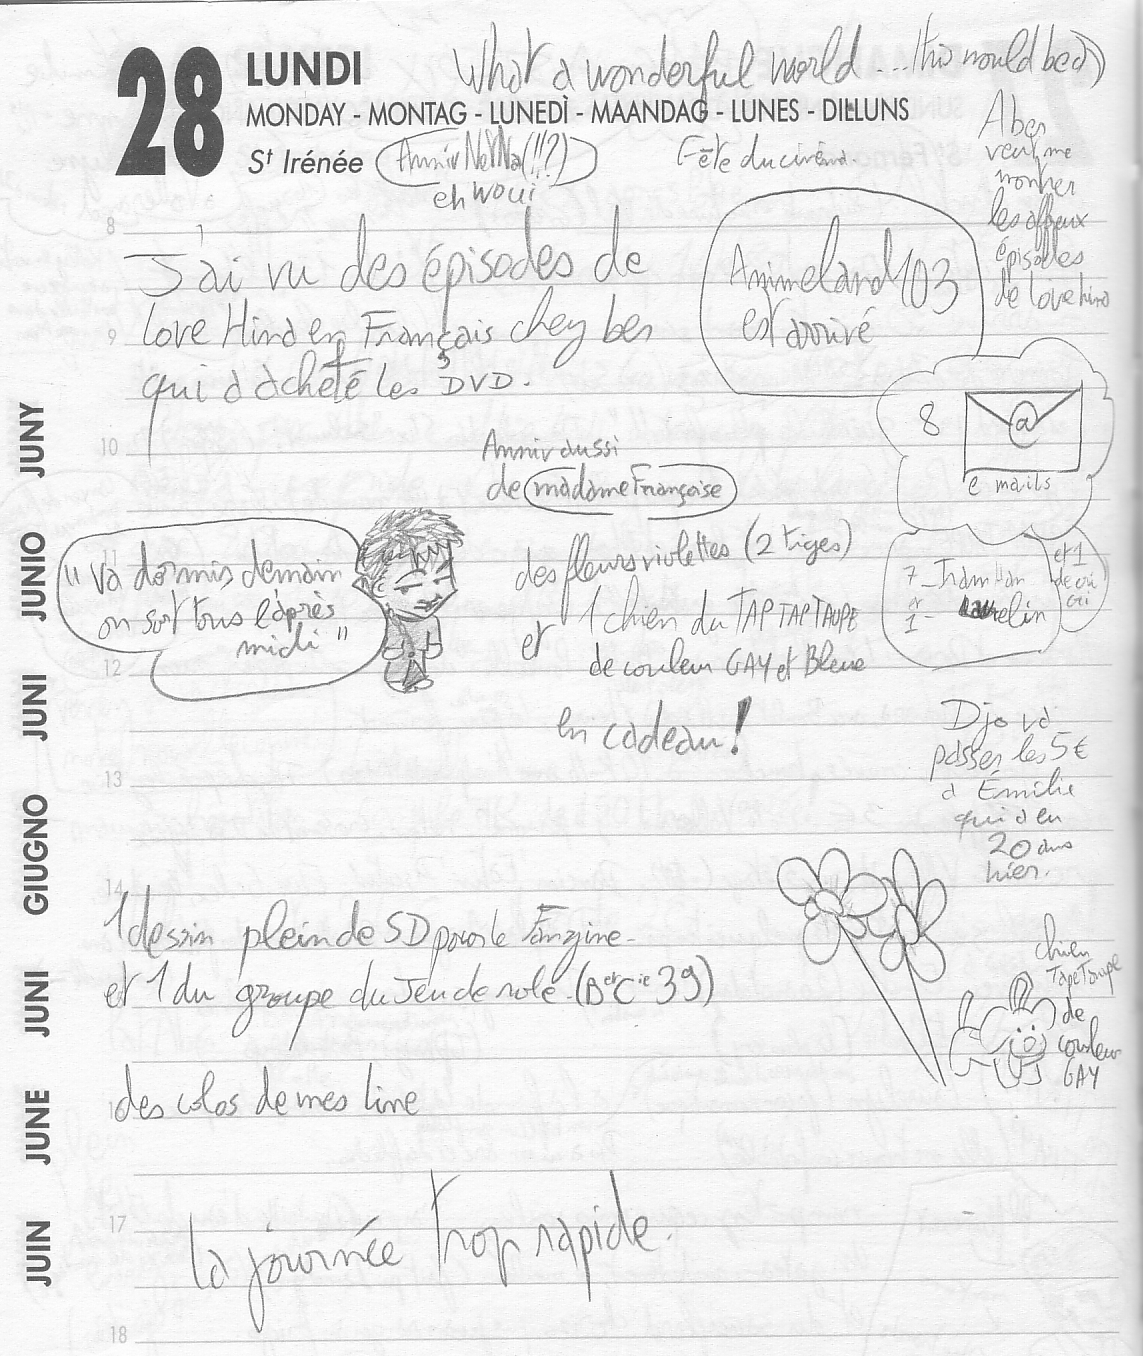 28 LUNDI
What a wonderful world ... (this would be a)
MONDAY - MONTAG - LUNEDÌ - MAANDAG - LUNES - DILLUNS
St Irénée
Anniv (!!?)
eh woui
Fête du cinéma.
A ben
veut me
montrer
les affreux
épisodes
de love hina
8
J'ai vu des épisodes de
love Hina en Français chez ben
qui a acheté les DVD.
9
10
Animeland 103
est arrivé
8 @
e mails
Anniv aussi
de madame Française
11
"Va dormir demain
on sort tous l'après
midi"
12
des fleurs violettes (2 tiges)
et 1 chien du TAP TAP TAUPE
de couleur GAY et Bleue
en cadeau!
7 -
et
1 -
et 1
de
Djo va
passer les 5€
à Émilie
qui a eu
20 ans
hier.
13
14
1 dessin plein de SD pour le Fanzine -
et 1 du groupe du Jeu de role. (B et Cie 39)
chien
Tape Taupe
de
couleur
GAY
des colos de mes line
17
la journée trop rapide.
18
JUIN JUNE JUNI GIUGNO JUNI JUNIO JUNY